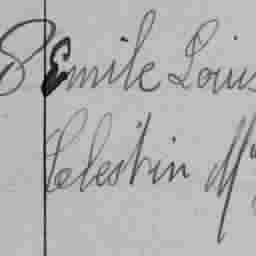 8 Emile Louis
Celestin